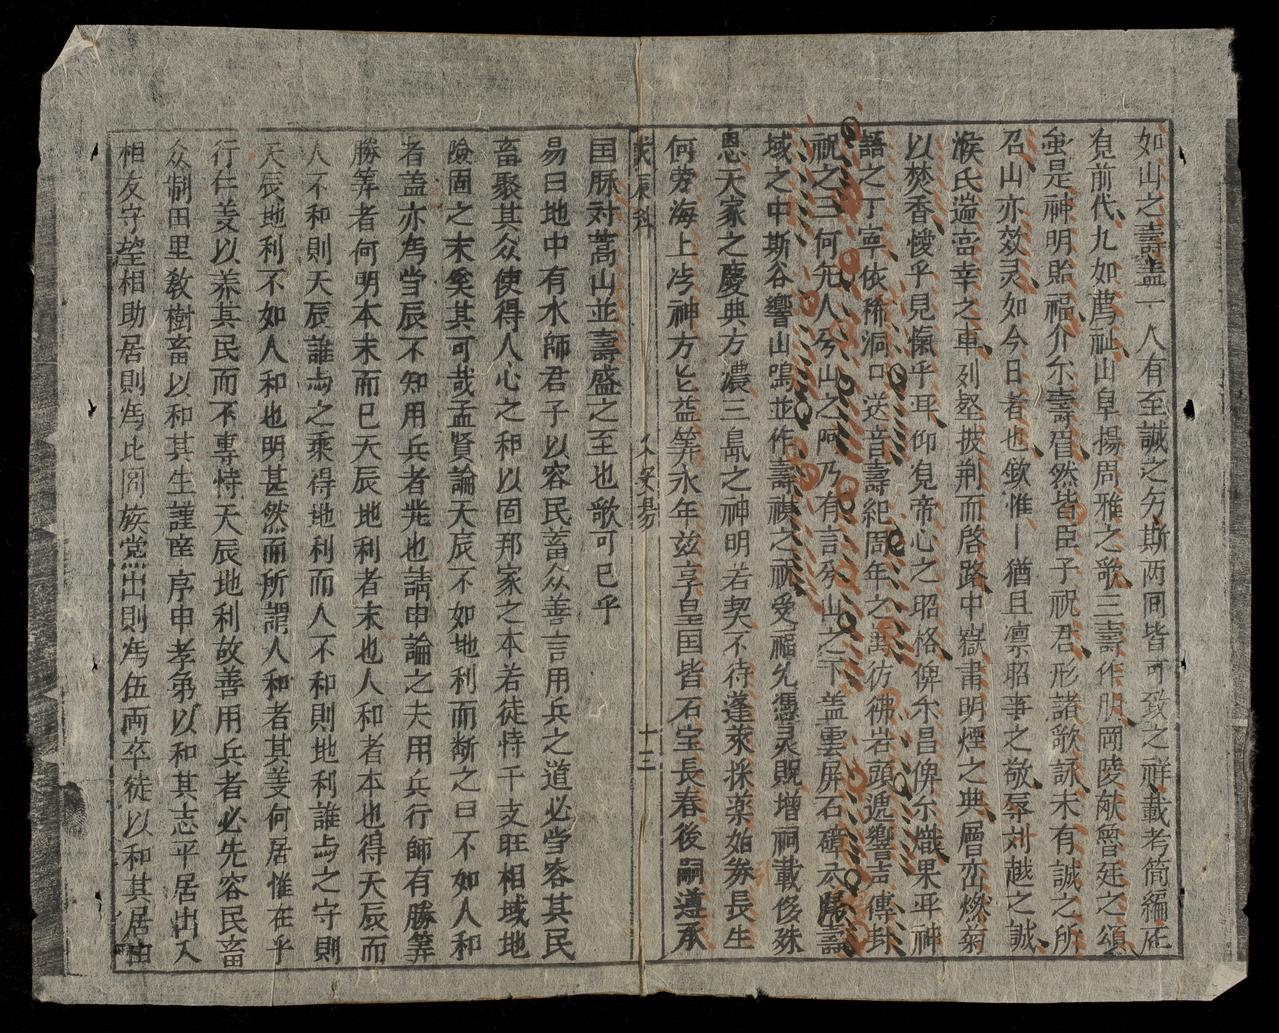 如山之壽盖一人有至誠之勻斯两间皆可致之祥載考簡編歴
覓前代九如蔿祉山阜揚周雅之歌三壽作朋岡陵献魯廷之頌
虽是神明貽福介尔壽眉然皆臣子祝君形諸歌詠未有誠之所
召山亦效灵如今日者也欽惟｜猶且凛昭亊之敬辱刘越之誠
猴氏遄啚幸之車列壑披荆而啓路中嶽書明煙之典層峦燃菊
以焚香懓乎見愾乎耳仰覓帝心之昭格俾尔昌俾尔熾果平神
語之丁寕依稀洞口送音壽紀周年之萬彷彿岩頭遞響声傳封
祝之三何先人兮山之阿乃有言兮山之下盖雲屏石磴太陽壽
域之中斯谷響山鳴並作壽祺之祝受福允憑灵貺增祠載侈殊
恩天家之慶典方濃三島之神明若契不待蓬萊採薬如券長生
何劳海上冷神方匕益筭永年玆享皇囯皆石宝長春後嗣遵承
囯脉对嵩山並壽盛之至也歌可已乎
戊辰科 久安塲 十三
易曰地中有水師君子以容民畜众善言用兵之道必当容其民
畜聚其众使得人心之和以固邦家之本若徒恃干支旺相域地
險固之末矣其可㢤孟賢論天辰不如地利而断之曰不如人和
者盖亦為当辰不知用兵者㫮也請申論之夫用兵行師有勝筭
勝筭者何明本末而已天辰地利者末也人和者本也得天辰而
人不和則天辰誰与之乘得地利而人不和則地利誰与之守則
天辰地利不如人和也明甚然而所謂人和者其㕥何居惟在乎
行仁㕥以养其民而不專恃天辰地利故善用兵者必先容民畜
众制田里敎樹畜以和其生謹庠序申孝弟以和其志平居出入
相友守望相助居則為比闾族党出則為伍両卒徒以和其居由